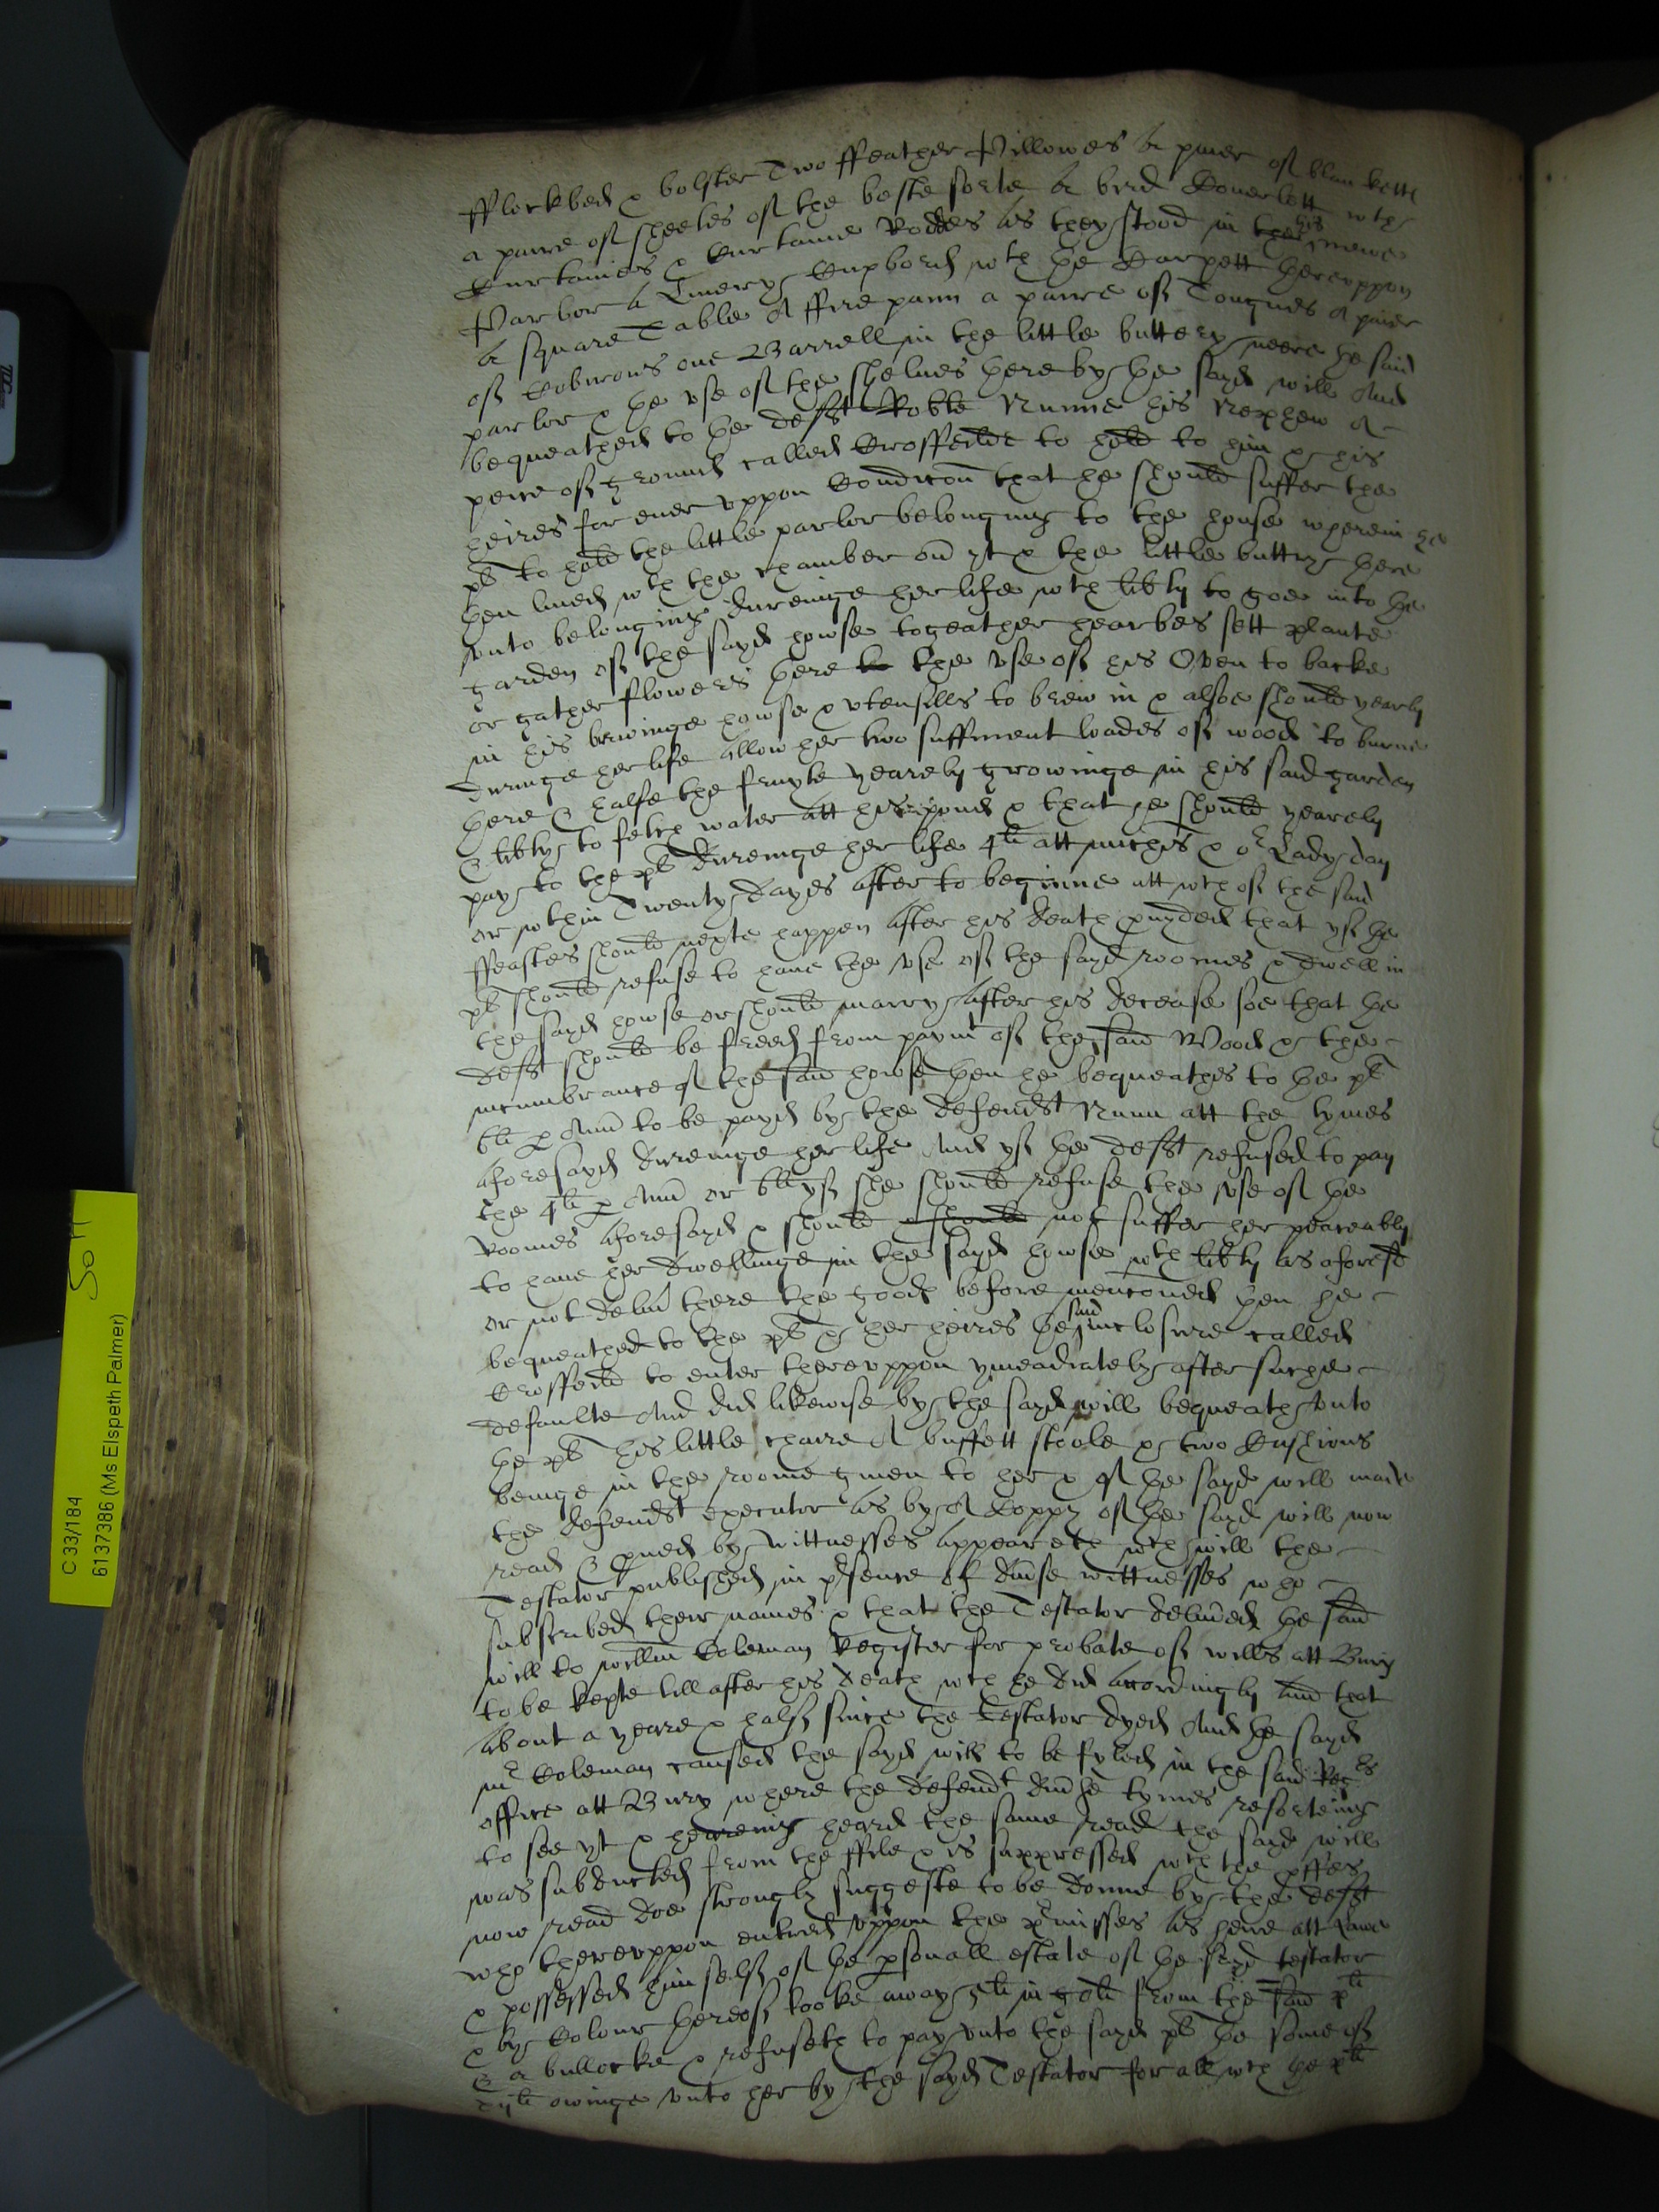 fflockbed & bolster Two ffeather Pillowes A paier of blanketts
a paire of sheetes of the beste sorte A bird Coverlett wth
Curtaines & Curtaine Rodes as they stood in the his newe
Parlor A Livery Cupbord wth he Carpett hereuppon
A square Table A ffire pann a paire of Tongues A paier
of Cobirons one Barrell in the little buttery neere he said
parlor & he use of the shelves here by he sayd will And
bequeathed to he deft Robte Nunne his Nephew A
peice of ground called Crosfeilde to hold to him & his
heires for ever uppon Condicon that he should suffer the
pl to hold the little parlor belonging to the house wherein he
hen lived wth the chamber on yt & the little buttry here
unto belonging dureinge her life wth libty to goe into he
garden of the sayd howse togeather hearbes sett plante
or gather flowers here to the use of his Oven to backe
in his brewinge howse & utensills to brew in & alsoe should yearly
duringe her life allow her two sufficient loades of wood to burne
here & halfe the fruyte yearely growinge in his said garden
& libty to fetch water att his pond & that he should yearely
pay to the pl dureinge her life 4li att michis & or Lady day
or wthin Twenty dayes after to beginne att wch of the said
ffeastes should nexte happen after his death pvyded that yf he
pl should refuse to have the use of the sayd roomes & dwell in
the sayd howse or should marry after his decease soe that he
deft should be freed from paymt of the said Wood & the
incumbrance of the said howse hen he bequeathes to he pl
6li p Ann to be payd by the defendt Nunn att the tymes
aforesayd dureinge her life And yf he deft refused to pay
the 4li p Ann or 6li yf she should refuse the use of he
Roomes aforesayd & should & should not suffer her peaceably
to have her dwellinge in the sayd howse wth libty as aforesd
or not delivr there the goods before mencond hen he
bequeathed to the pl & her heires he said inclosure called
Crosfeild to enter thereuppon ymeadiately after suche
defaulte And did likewise by the sayd will bequeath unto
he pl his little chaire A buffett stoole & two Cushions
beinge in the roome given to her & of he sayd will made
the defendt executor as by A Coppy of he sayd will now
read & pved by wittnesses appeareth wch will the
Testator published in psence of divse wittnesses who
subscribed their names & that the Testator delivred he said
will to willm Coleman Register for probate of wills att Bury
to be kepte till after his death wch he did accordingly And that
about a yeare & half since the testator dyed And he sayd
mr Coleman caused the sayd will to be fyled in the said Regrs
office att Bury where the defendt divse tymes resorteing
to see yt & heareing heard the same read the sayd will
was subducted from the ffile & is suppressed wch the pffes
now read doe strongly suggeste to be donne by the deft
who thereuppon entred uppon the pmisses as heire att Lawe
& possessed himself of he psonall estate of he sayd testator
& by Colour hereof tooke away 5li in gold from the said pl
& a bullocke & refuseth to pay unto the sayd pl he some of
owinge unto her by the sayd Testator for all wch he pl
C 33/184
6137386 (Ms Elspeth Palmer)